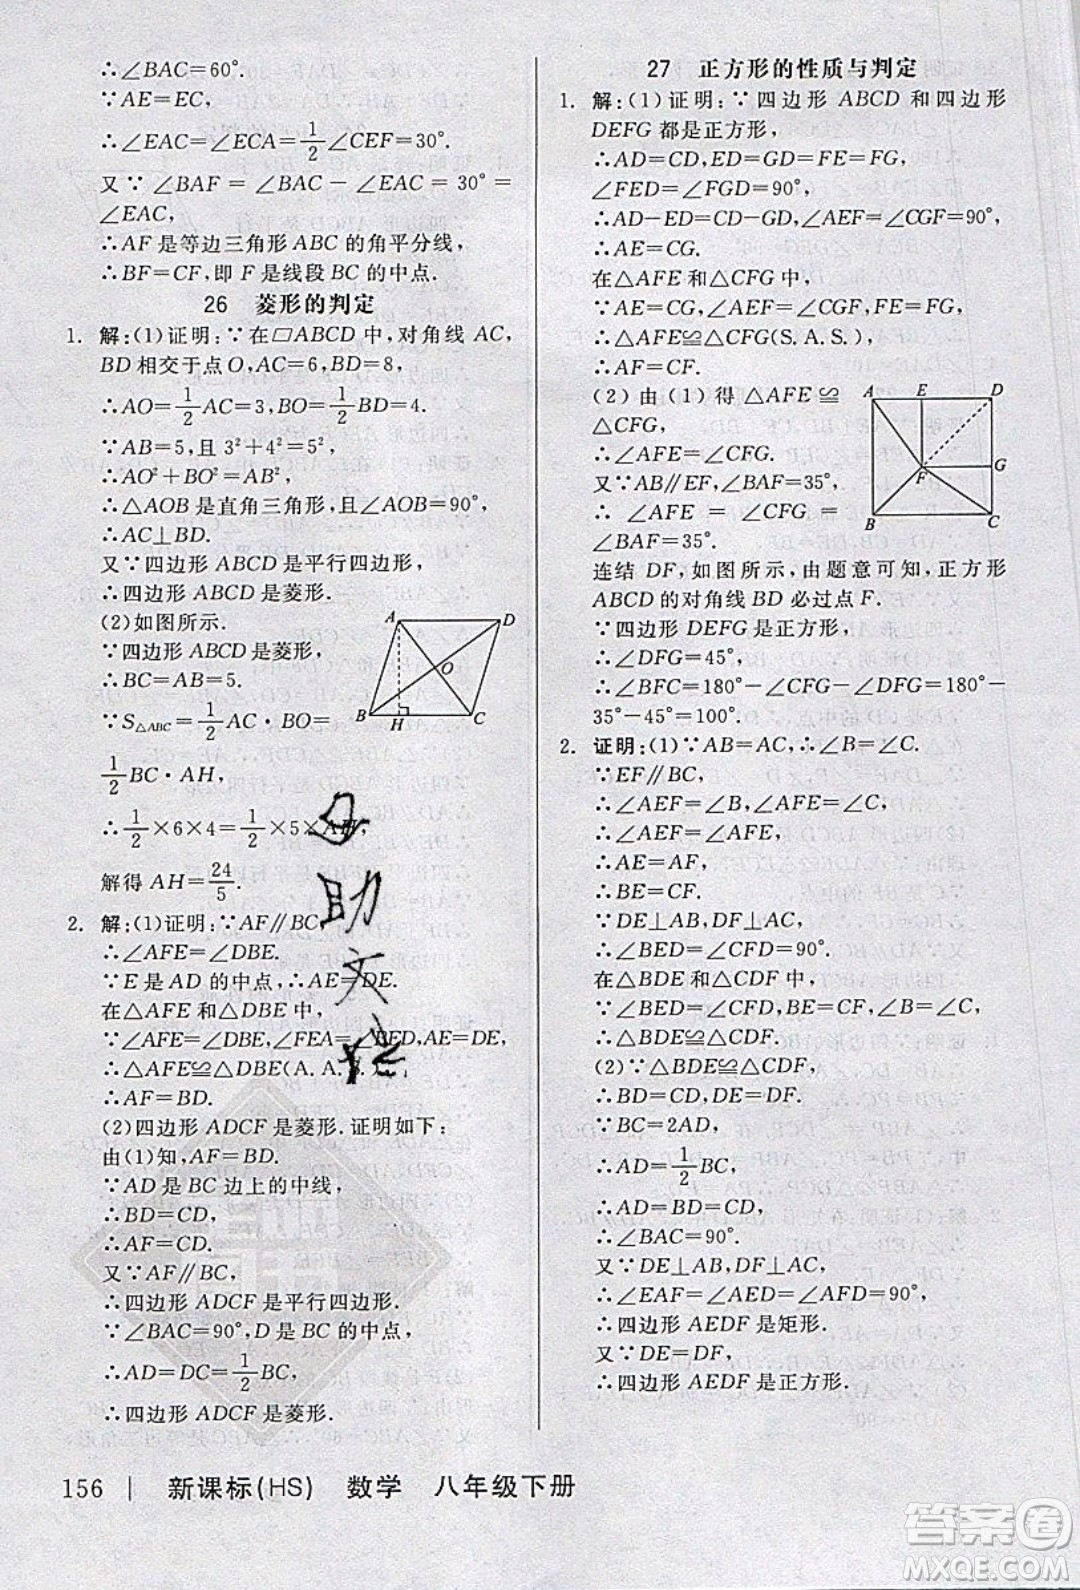 ∴∠BAC=60°.
∵AE=EC,
∴∠EAC=∠ECA=1/2∠CEF=30°.
又∵∠BAF=∠BAC-∠EAC=30°=
∠EAC,
∴AF是等边三角形ABC的角平分线,
∴BF=CF,即F是线段BC的中点.
26 菱形的判定
1. 解:(1)证明:∵在▱ABCD中,对角线AC,
BD相交于点O,AC=6,BD=8,
∴AO=1/2AC=3,BO=1/2BD=4.
∵AB=5,且3²+4²=5²,
∴AO²+BO²=AB²,
∴△AOB是直角三角形,且∠AOB=90°,
∴AC⊥BD.
又∵四边形ABCD是平行四边形,
∴四边形ABCD是菱形.
(2)如图所示.
∵四边形ABCD是菱形,
∴BC=AB=5.
∵S△ABC=1/2AC·BO=
1/2BC·AH,
∴1/2×6×4=1/2×5×AH,
解得AH=24/5.
A D O B H C
2. 解:(1)证明:∵AF∥BC,
∴∠AFE=∠DBE.
∵E是AD的中点,∴AE=DE.
在△AFE和△DBE中,
∵∠AFE=∠DBE,∠FEA=∠BED,AE=DE,
∴△AFE≌△DBE(A.A.S.),
∴AF=BD.
(2)四边形ADCF是菱形.证明如下:
由(1)知,AF=BD.
∵AD是BC边上的中线,
∴BD=CD,
∴AF=CD.
又∵AF∥BC,
∴四边形ADCF是平行四边形.
∵∠BAC=90°,D是BC的中点,
∴AD=DC=1/2BC,
∴四边形ADCF是菱形.
27 正方形的性质与判定
1. 解:(1)证明:∵四边形ABCD和四边形
DEFG都是正方形,
∴AD=CD,ED=GD=FE=FG,
∠FED=∠FGD=90°,
∴AD-ED=CD-GD,∠AEF=∠CGF=90°,
∴AE=CG.
在△AFE和△CFG中,
∵AE=CG,∠AEF=∠CGF,FE=FG,
∴△AFE≌△CFG(S.A.S.),
∴AF=CF.
(2)由(1)得△AFE≌
△CFG,
∴∠AFE=∠CFG.
又∵AB∥EF,∠BAF=35°,
∴∠AFE=∠CFG=
∠BAF=35°.
A E D F G B C
连结DF,如图所示,由题意可知,正方形
ABCD的对角线BD必过点F.
∵四边形DEFG是正方形,
∴∠DFG=45°,
∴∠BFC=180°-∠CFG-∠DFG=180°-
35°-45°=100°.
2. 证明:(1)∵AB=AC,∴∠B=∠C.
∵EF∥BC,
∴∠AEF=∠B,∠AFE=∠C,
∴∠AEF=∠AFE,
∴AE=AF,
∴BE=CF.
∵DE⊥AB,DF⊥AC,
∴∠BED=∠CFD=90°.
在△BDE和△CDF中,
∵∠BED=∠CFD,BE=CF,∠B=∠C,
∴△BDE≌△CDF.
(2)∵△BDE≌△CDF,
∴BD=CD,DE=DF.
∵BC=2AD,
∴AD=1/2BC,
∴AD=BD=CD,
∴∠BAC=90°.
又∵DE⊥AB,DF⊥AC,
∴∠EAF=∠AED=∠AFD=90°,
∴四边形AEDF是矩形.
又∵DE=DF,
∴四边形AEDF是正方形.
156 | 新课标(HS) 数学 八年级下册
答案圈
MXQE.COM